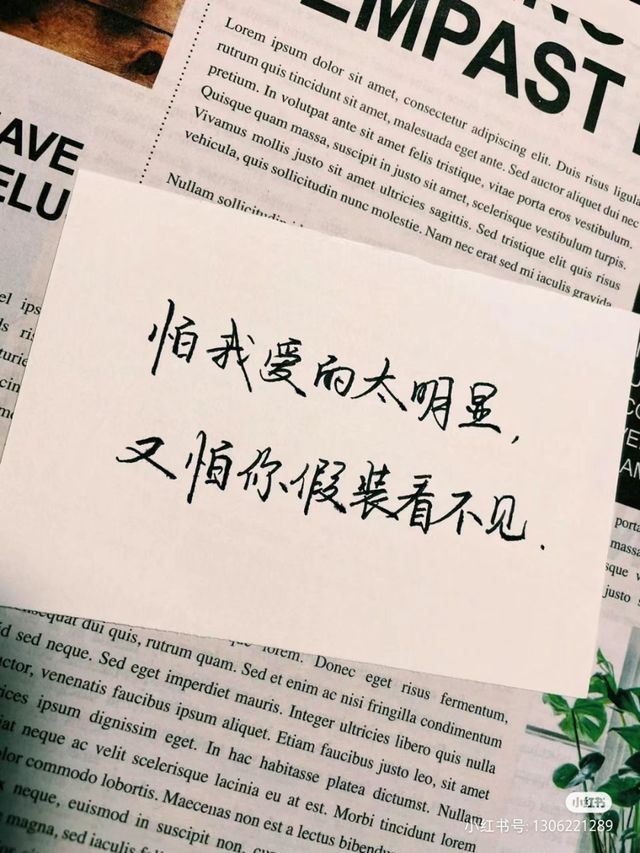 EMPAST
Lorem ipsum dolor sit amet, consectetur adipiscing elit. Duis risus ligula
rutrum quis tincidunt sit amet, malesuada eget ante. Sed auctor aliquet dui nec
pretium. In volutpat ante sit amet felis tristique, vitae porta eros vestibulum.
Quisque quam massa, suscipit in justo sit amet, scelerisque vestibulum turpis.
Vivamus mollis justo sit amet ultricies sagittis. Sed tristique elit quis risus
vehicula, quis sollicitudin nunc molestie. Nam nec erat sed mi iaculis gravida
Nullam sollicitudin
AVE
ELU
怕我爱的太明显,
又怕你假装看不见.
porta
massa
justo
dui quis, rutrum quam. Sed et enim ac nisi fringilla condimentum
lorem. Donec eget risus fermentum,
sed neque. Sed eget imperdiet mauris. Integer ultricies libero quis nulla
venenatis faucibus ipsum aliquet. Etiam faucibus justo leo, sit amet
ipsum dignissim eget. In hac habitasse platea dictumst. Nullam
neque ac velit scelerisque lacinia eu at est. Morbi tincidunt lorem
commodo lobortis. Maecenas non est a lectus bibendum
neque, euismod in suscipit non,
magna, sed iaculis
小红书
小红书号: 1306221289